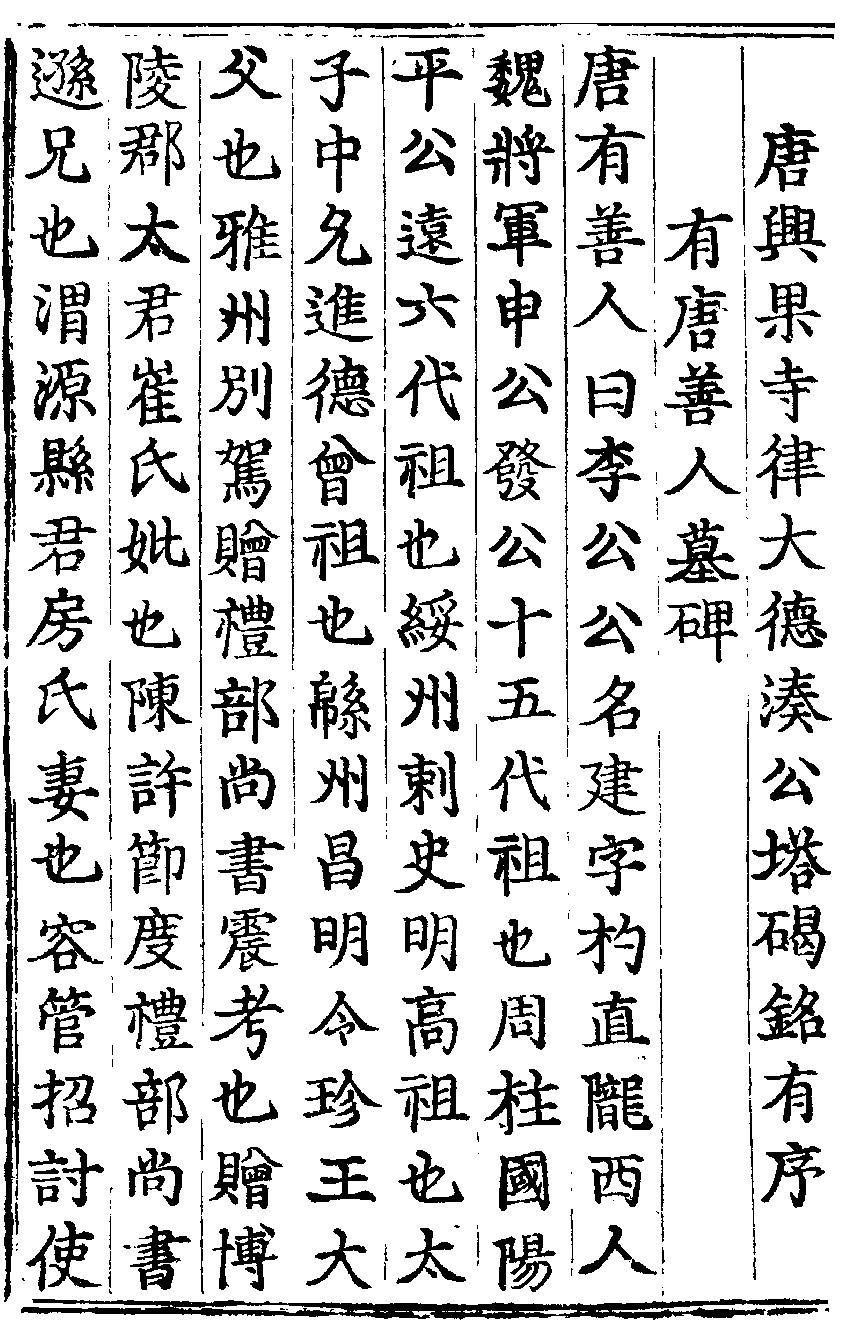 唐興果寺律大德湊公塔碣銘有序
有唐善人墓碑
唐有善人曰李公公名建字杓直隴西人
魏將軍申公發公十五代祖也周柱國陽
平公遠六代祖也綏州刺史明高祖也太
子中允進德曾祖也緜州昌明令珍王大
父也雅州別駕贈禮部尚書震考也贈博
陵郡太君崔氏妣也陳許節度禮部尚書
遜兄也渭源縣君房氏妻也容管招討使